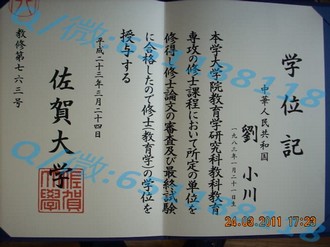 学位記
中華人民共和国
劉小川
一九八三年一月二十一日生
本学大学院教育学研究科教科教育
専攻の修士課程において所定の単位を
修得し修士論文の審査及び最終試験
に合格したので修士(教育学)の学位を
授与する
平成二十三年三月二十四日
佐賀大学
教修第七六三号
24.03.2011 17:23